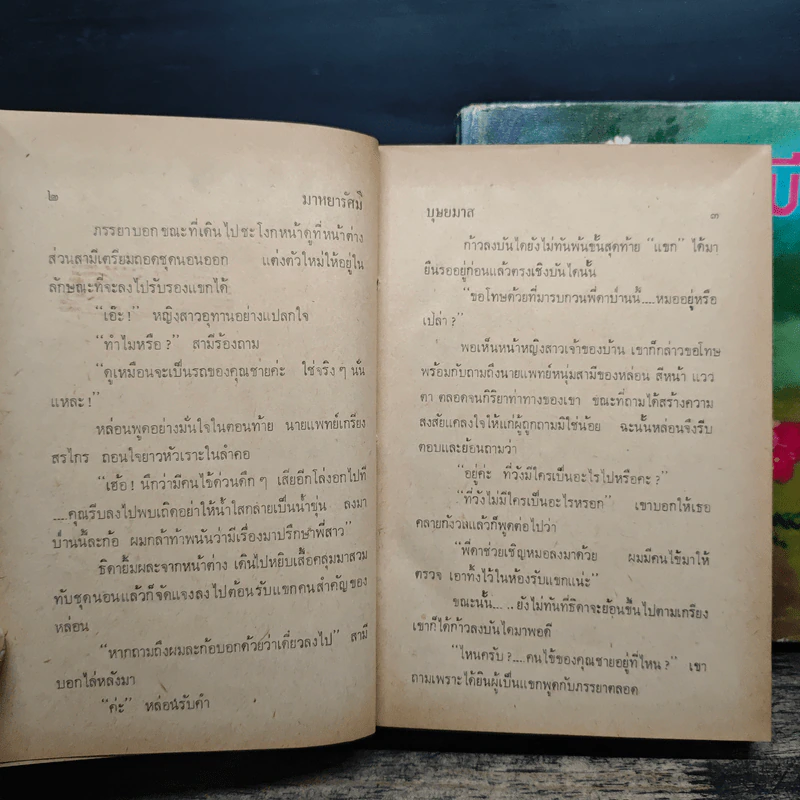 ๒ มาหยารัศมี
ภรรยาบอก ขณะที่เดินไปชะโงกหน้าดูที่หน้าต่าง
ส่วนสามีเตรียมถอดชุดนอนออก แต่งตัวใหม่ให้อยู่ใน
ลักษณะที่จะลงไปรับรองแขกได้
“เอ๊ะ!” หญิงสาวอุทานอย่างแปลกใจ
“ทำไมหรือ?” สามีร้องถาม
“ดูเหมือนจะเป็นรถของคุณชายค่ะ ใช่จริงๆ นั่น
แหละ!”
หล่อนพูดอย่างมั่นใจในตอนท้าย นายแพทย์เกรียง
สรไกร ถอนใจยาวหัวเราะในลำคอ
“เฮ้อ! นึกว่ามีคนไข้ด่วนดึกๆ เสียอีกโล่งอกไปที
....คุณรีบลงไปพบเถิดอย่าให้น้ำใสกลายเป็นน้ำขุ่น ลงมา
บ้านนี้ละก้อ ผมกล้าท้าพนันว่ามีเรื่องมาปรึกษาพี่สาว”
ธิดายิ้มผละจากหน้าต่าง เดินไปหยิบเสื้อคลุมมาสวม
ทับชุดนอนแล้วก็จัดแจงลงไปต้อนรับแขกคนสำคัญของ
หล่อน
“หากถามถึงผมละก้อบอกด้วยว่าเดี๋ยวลงไป” สามี
บอกไล่หลังมา
“ค่ะ” หล่อนรับคำ
บุษยมาส ๓
ก้าวลงบันไดยังไม่ทันพ้นขั้นสุดท้าย “แขก” ได้มา
ยืนรออยู่ก่อนแล้วตรงเชิงบันไดนั้น
“ขอโทษด้วยที่มารบกวนพี่ดาบ้านนี้....หมออยู่หรือ
เปล่า?”
พอเห็นหน้าหญิงสาวเจ้าของบ้าน เขาก็กล่าวขอโทษ
พร้อมกับถามถึงนายแพทย์หนุ่มสามีของหล่อน สีหน้า แวว
ตา ตลอดจนกิริยาท่าทางของเขา ขณะที่ถามได้สร้างความ
สงสัยแคลงใจให้แก่ผู้ถูกถามมิใช่น้อย ฉะนั้นหล่อนจึงรีบ
ตอบและย้อนถามว่า
“อยู่ค่ะ ที่วังมีใครเป็นอะไรไปหรือคะ?”
“ที่วังไม่มีใครเป็นอะไรหรอก” เขาบอกให้เธอ
คลายกังวลแล้วก็พูดต่อไปว่า
“พี่ดาช่วยเชิญหมอลงมาด้วย ผมมีคนไข้มาให้
ตรวจ เอาทิ้งไว้ในห้องรับแขกแน่ะ”
ขณะนั้น.....ยังไม่ทันที่ธิดาจะย้อนขึ้นไปตามเกรียง
เขาก็ได้ก้าวลงบันไดมาพอดี
“ไหนครับ?....คนไข้ของคุณชายอยู่ที่ไหน?” เขา
ถามเพราะได้ยินผู้เป็นแขกพูดกับภรรยาตลอด